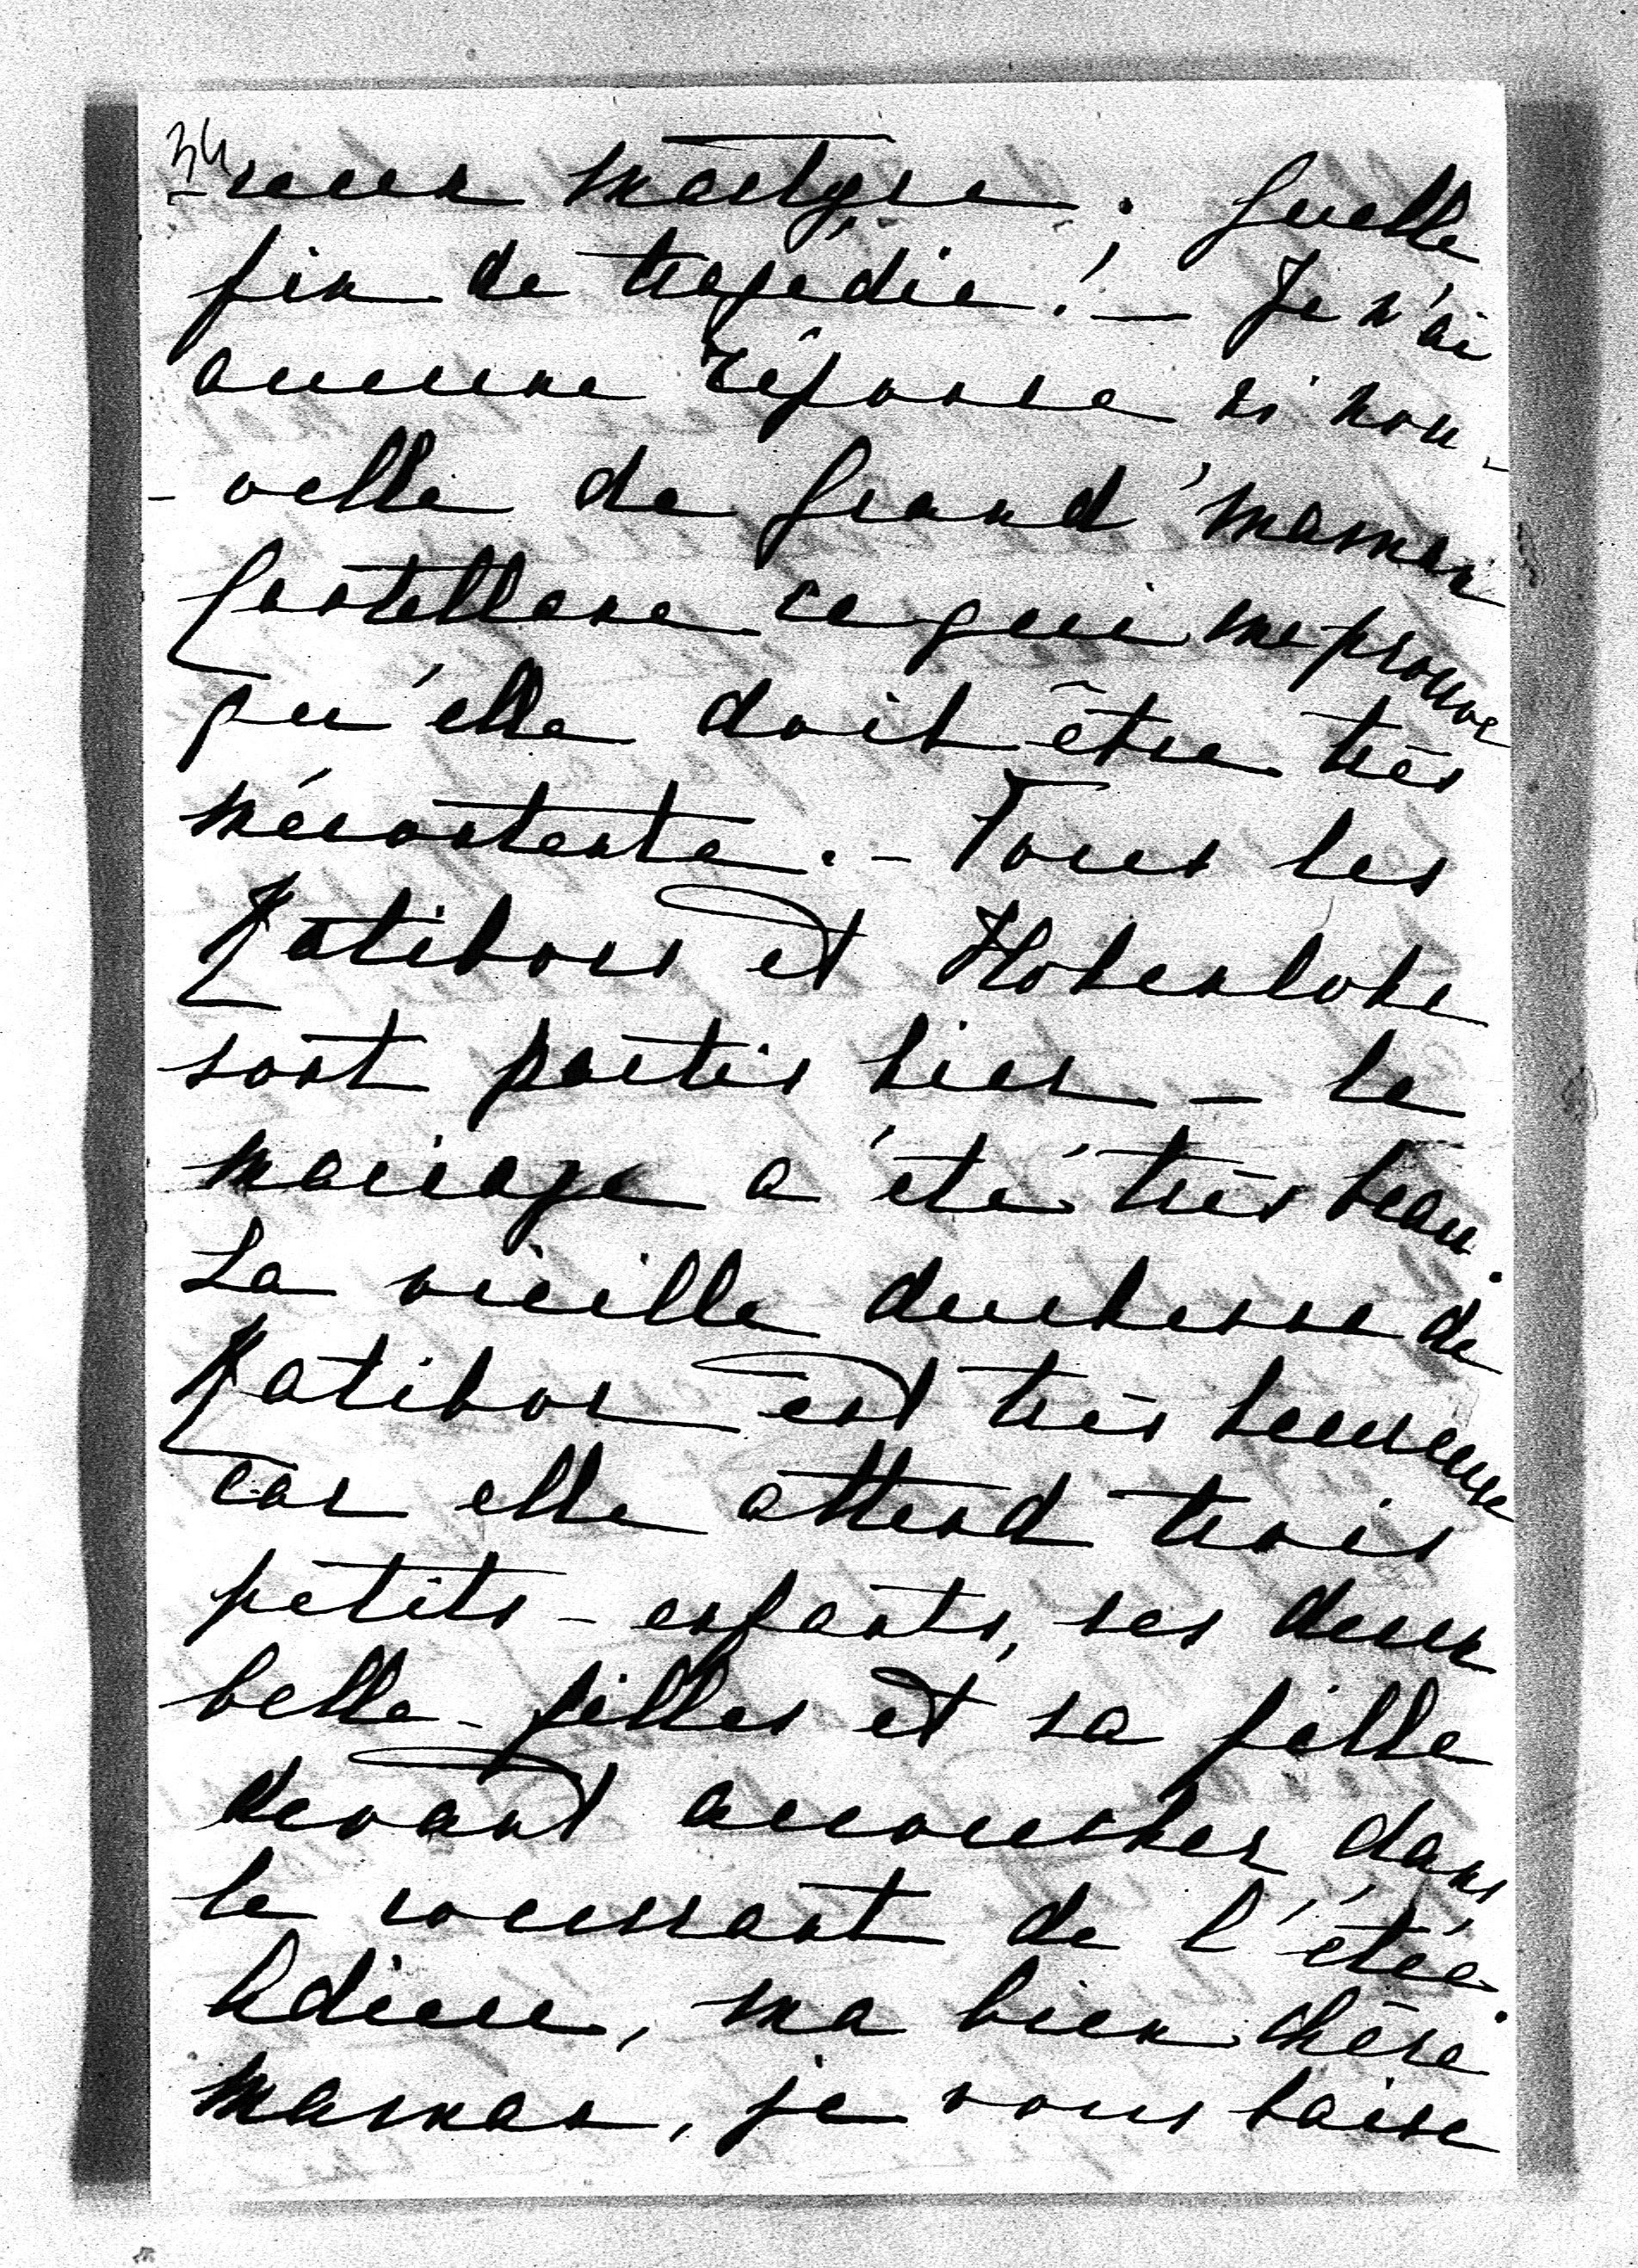 34
-reux martyre; quelle
fin de tragédie! — Je n'ai
aucune réponse ni nou-
-velle de Grand'maman
Castellane ce qui me prouve
qu'elle doit être très
mécontente. - Tous les
Ratibors et Hohenlohe
sont partis hier — le
mariage a été très beau.
La vieille duchesse de
Ratibor est très heureuse
car elle attend trois
petits-enfants, ses deux
belle-filles et sa fille
devant accoucher dans
le courrant de l'étée.
Adieu, ma bien chère
maman, je vous baise